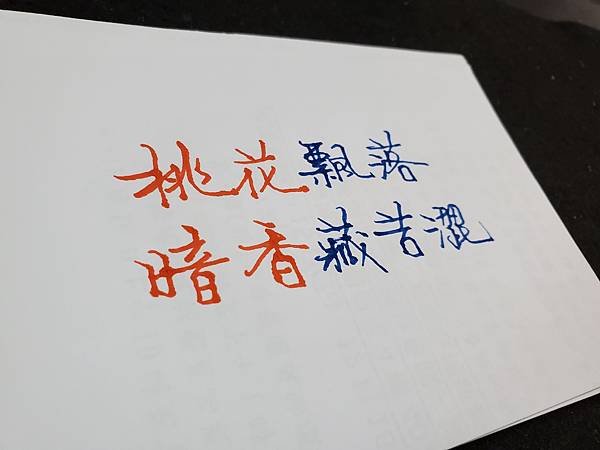 桃花飄落
暗香藏苦澀